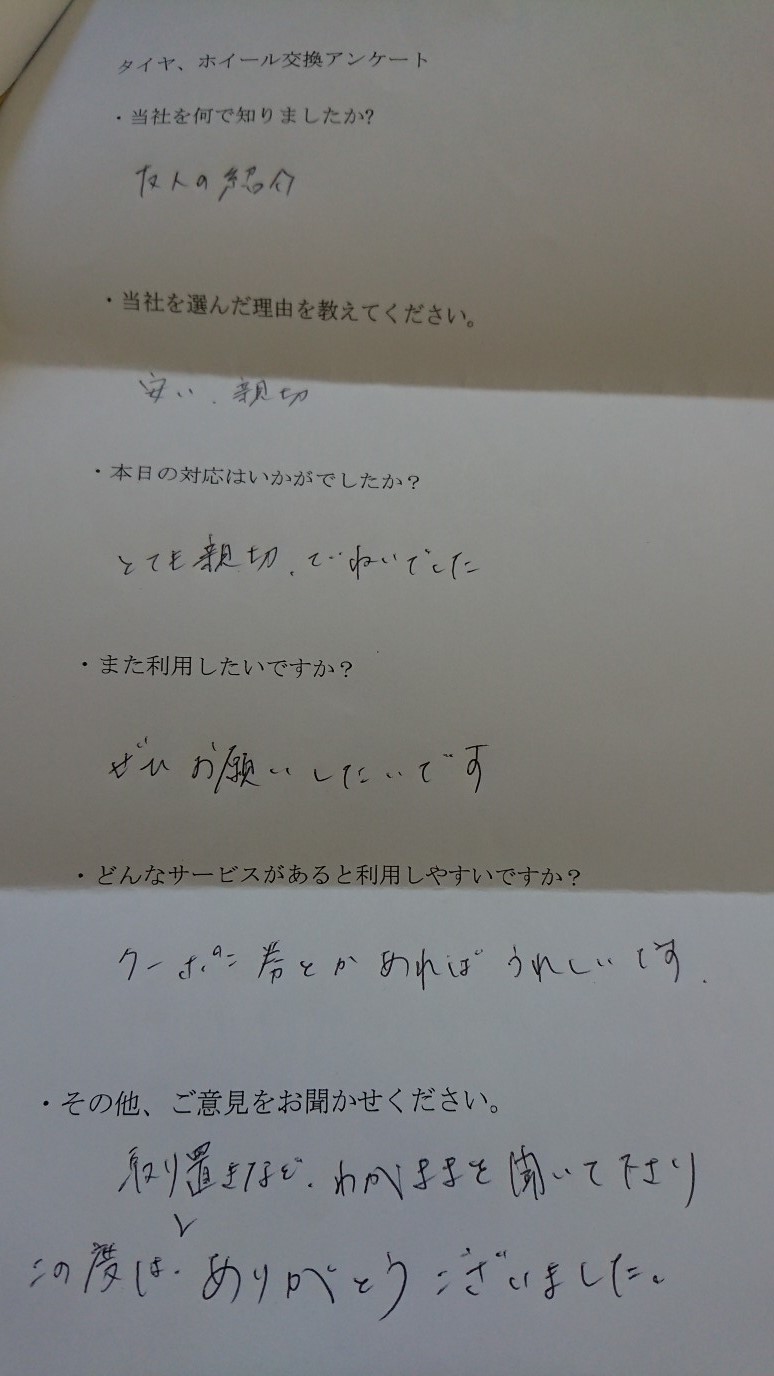 タイヤ、ホイール交換アンケート
・当社を何で知りましたか?
友人の紹介
・当社を選んだ理由を教えてください。
安い、親切
・本日の対応はいかがでしたか？
とても親切、ていねいでした
・また利用したいですか？
ぜひお願いしたいです
・どんなサービスがあると利用しやすいですか？
クーポン券とかあればうれしいです.
・その他、ご意見をお聞かせください。
取り置きなど、わがままを聞いて下さり
この度は、ありがとうございました。